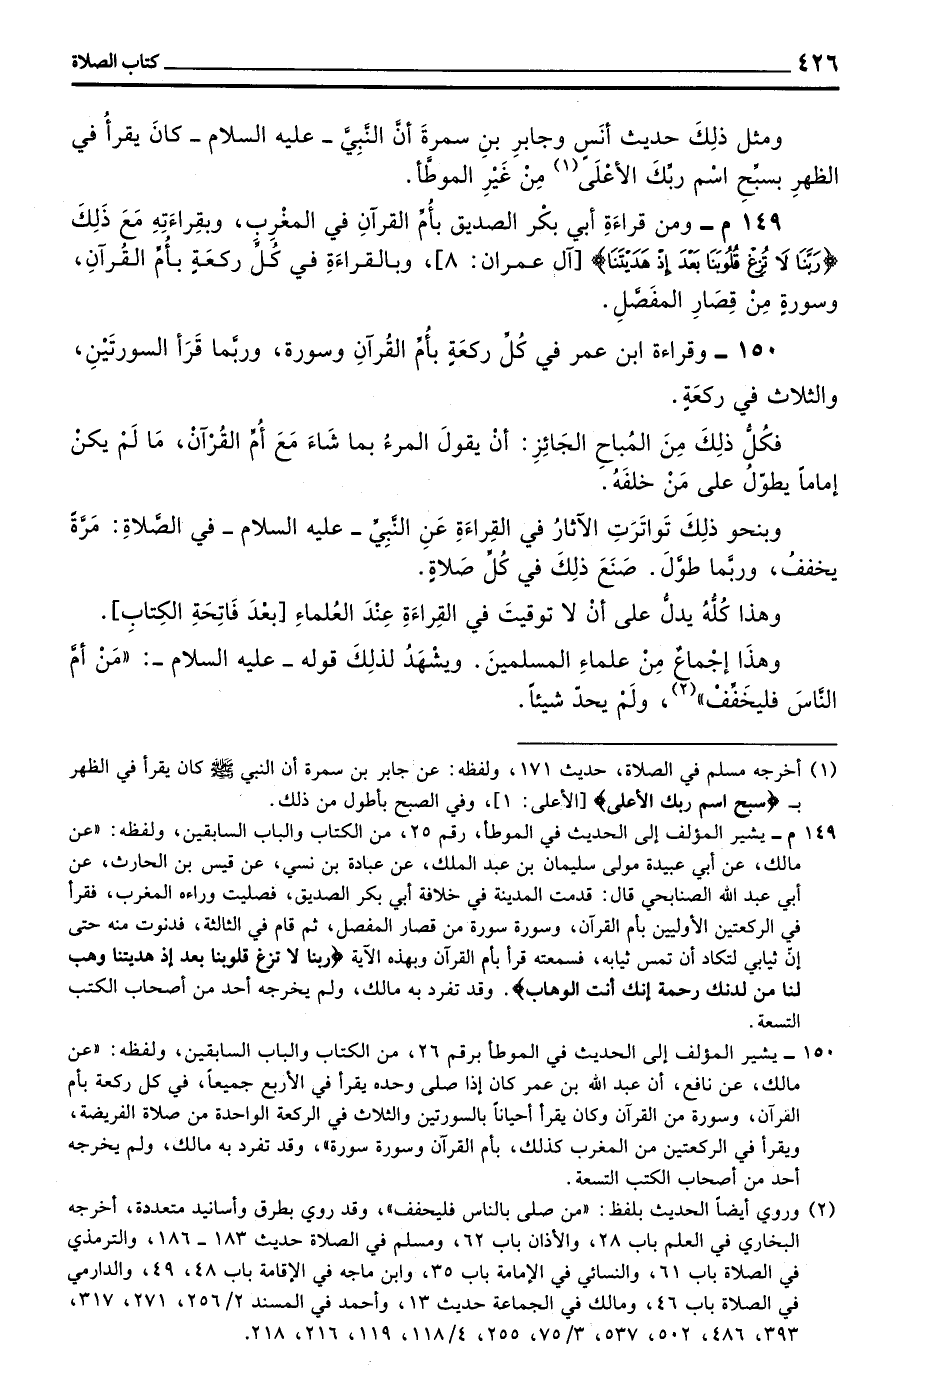 ٤٢٦ كتاب الصلاة
ومثل ذلِكَ حديث أنَسٍ وجابرِ بنِ سمرةَ أنَّ النَّبِيَّ ـ عليه السلام ـ كانَ يقرأُ في
الظهرِ بسبِّحِ اسْم ربِّكَ الأعْلَى(١) مِنْ غَيْرِ الموطَّأ.
١٤٩ م ـ ومن قراءَةِ أبي بكْر الصديق بأُمِّ القرآنِ في المغْربِ، وبقِراءَتِهِ مَعَ ذَلِكَ
﴿رَبَّنَا لَا تُزِغْ قُلُوبَنَا بَعْدَ إِذْ هَدَيْتَنَا﴾ [آل عمران: ٨]، وبالقراءَةِ في كُلِّ ركعَةٍ بأُمِّ القُرآنِ،
وسورةٍ مِنْ قِصَارِ المفَصَّلِ.
١٥٠ ـ وقراءة ابن عمر في كُلِّ ركعَةٍ بأُمِّ القُرآنِ وسورة، وربَّما قَرَأ السورتَيْنِ،
والثلاث في ركعَةٍ.
فكُلُّ ذلِكَ مِنَ المُباحِ الجَائِزِ: أنْ يقولَ المرءُ بما شَاءَ مَعَ أمِّ القُرْآنْ، مَا لَمْ يكنْ
إماماً يطوّلُ على مَنْ خلفَهُ.
وبنحو ذلِكَ تَواتَرَتِ الآثارُ في القِراءَةِ عَنِ النَّبِيِّ ـ عليه السلام ـ في الصَّلاةِ: مَرَّةً
يخففُ، وربَّما طوَّلَ. صَنَعَ ذلِكَ في كُلِّ صَلاةٍ.
وهذا كُلُّهُ يدلُّ على أنْ لا توقيتَ في القِراءَةِ عِنْدَ العُلماءِ [بعْدَ فَاتِحَةِ الكِتابِ].
وهذَا إجْماعٌ مِنْ علماءِ المسلمينَ. ويشْهَدُ لذلِكَ قوله ـ عليه السلام ـ: «مَنْ أمَّ
النَّاسَ فليخَفِّفْ»(٢)، ولَمْ يحدّ شيئاً.
(١) أخرجه مسلم في الصلاة، حديث ١٧١، ولفظه: عن جابر بن سمرة أن النبي ﷺ كان يقرأ في الظهر
بـ ﴿سبح اسم ربك الأعلى﴾ [الأعلى: ١]، وفي الصبح بأطول من ذلك.
١٤٩ م ـ يشير المؤلف إلى الحديث في الموطأ، رقم ٢٥، من الكتاب والباب السابقين، ولفظه: «عن
مالك، عن أبي عبيدة مولى سليمان بن عبد الملك، عن عبادة بن نسي، عن قيس بن الحارث، عن
أبي عبد الله الصنابحي قال: قدمت المدينة في خلافة أبي بكر الصديق، فصليت وراءه المغرب، فقرأ
في الركعتين الأوليين بأم القرآن، وسورة سورة من قصار المفصل، ثم قام في الثالثة، فدنوت منه حتى
إنّ ثيابي لتكاد أن تمس ثيابه، فسمعته قرأ بأم القرآن وبهذه الآية ﴿ربنا لا تزغ قلوبنا بعد إذ هديتنا وهب
لنا من لدنك رحمة إنك أنت الوهاب﴾. وقد تفرد به مالك، ولم يخرجه أحد من أصحاب الكتب
التسعة.
١٥٠ ـ يشير المؤلف إلى الحديث في الموطأ برقم ٢٦، من الكتاب والباب السابقين، ولفظه: «عن
مالك، عن نافع، أن عبد الله بن عمر كان إذا صلى وحده يقرأ في الأربع جميعاً، في كل ركعة بأم
القرآن، وسورة من القرآن وكان يقرأ أحياناً بالسورتين والثلاث في الركعة الواحدة من صلاة الفريضة،
ويقرأ في الركعتين من المغرب كذلك، بأم القرآن وسورة سورة»، وقد تفرد به مالك، ولم يخرجه
أحد من أصحاب الكتب التسعة.
(٢) وروي أيضاً الحديث بلفظ: «من صلى بالناس فليخفف»، وقد روي بطرق وأسانيد متعددة، أخرجه
البخاري في العلم باب ٢٨، والأذان باب ٦٢، ومسلم في الصلاة حديث ١٨٣ ـ ١٨٦، والترمذي
في الصلاة باب ٦١، والنسائي في الإمامة باب ٣٥، وابن ماجه في الإقامة باب ٤٨، ٤٩، والدارمي
في الصلاة باب ٤٦، ومالك في الجماعة حديث ١٣، وأحمد في المسند ٢/ ٢٥٦، ٢٧١، ٣١٧،
٣٩٣، ٤٨٦، ٥٠٢، ٥٣٧، ٣/ ٧٥، ٢٥٥، ٤/ ١١٨، ١١٩، ٢١٦، ٢١٨.